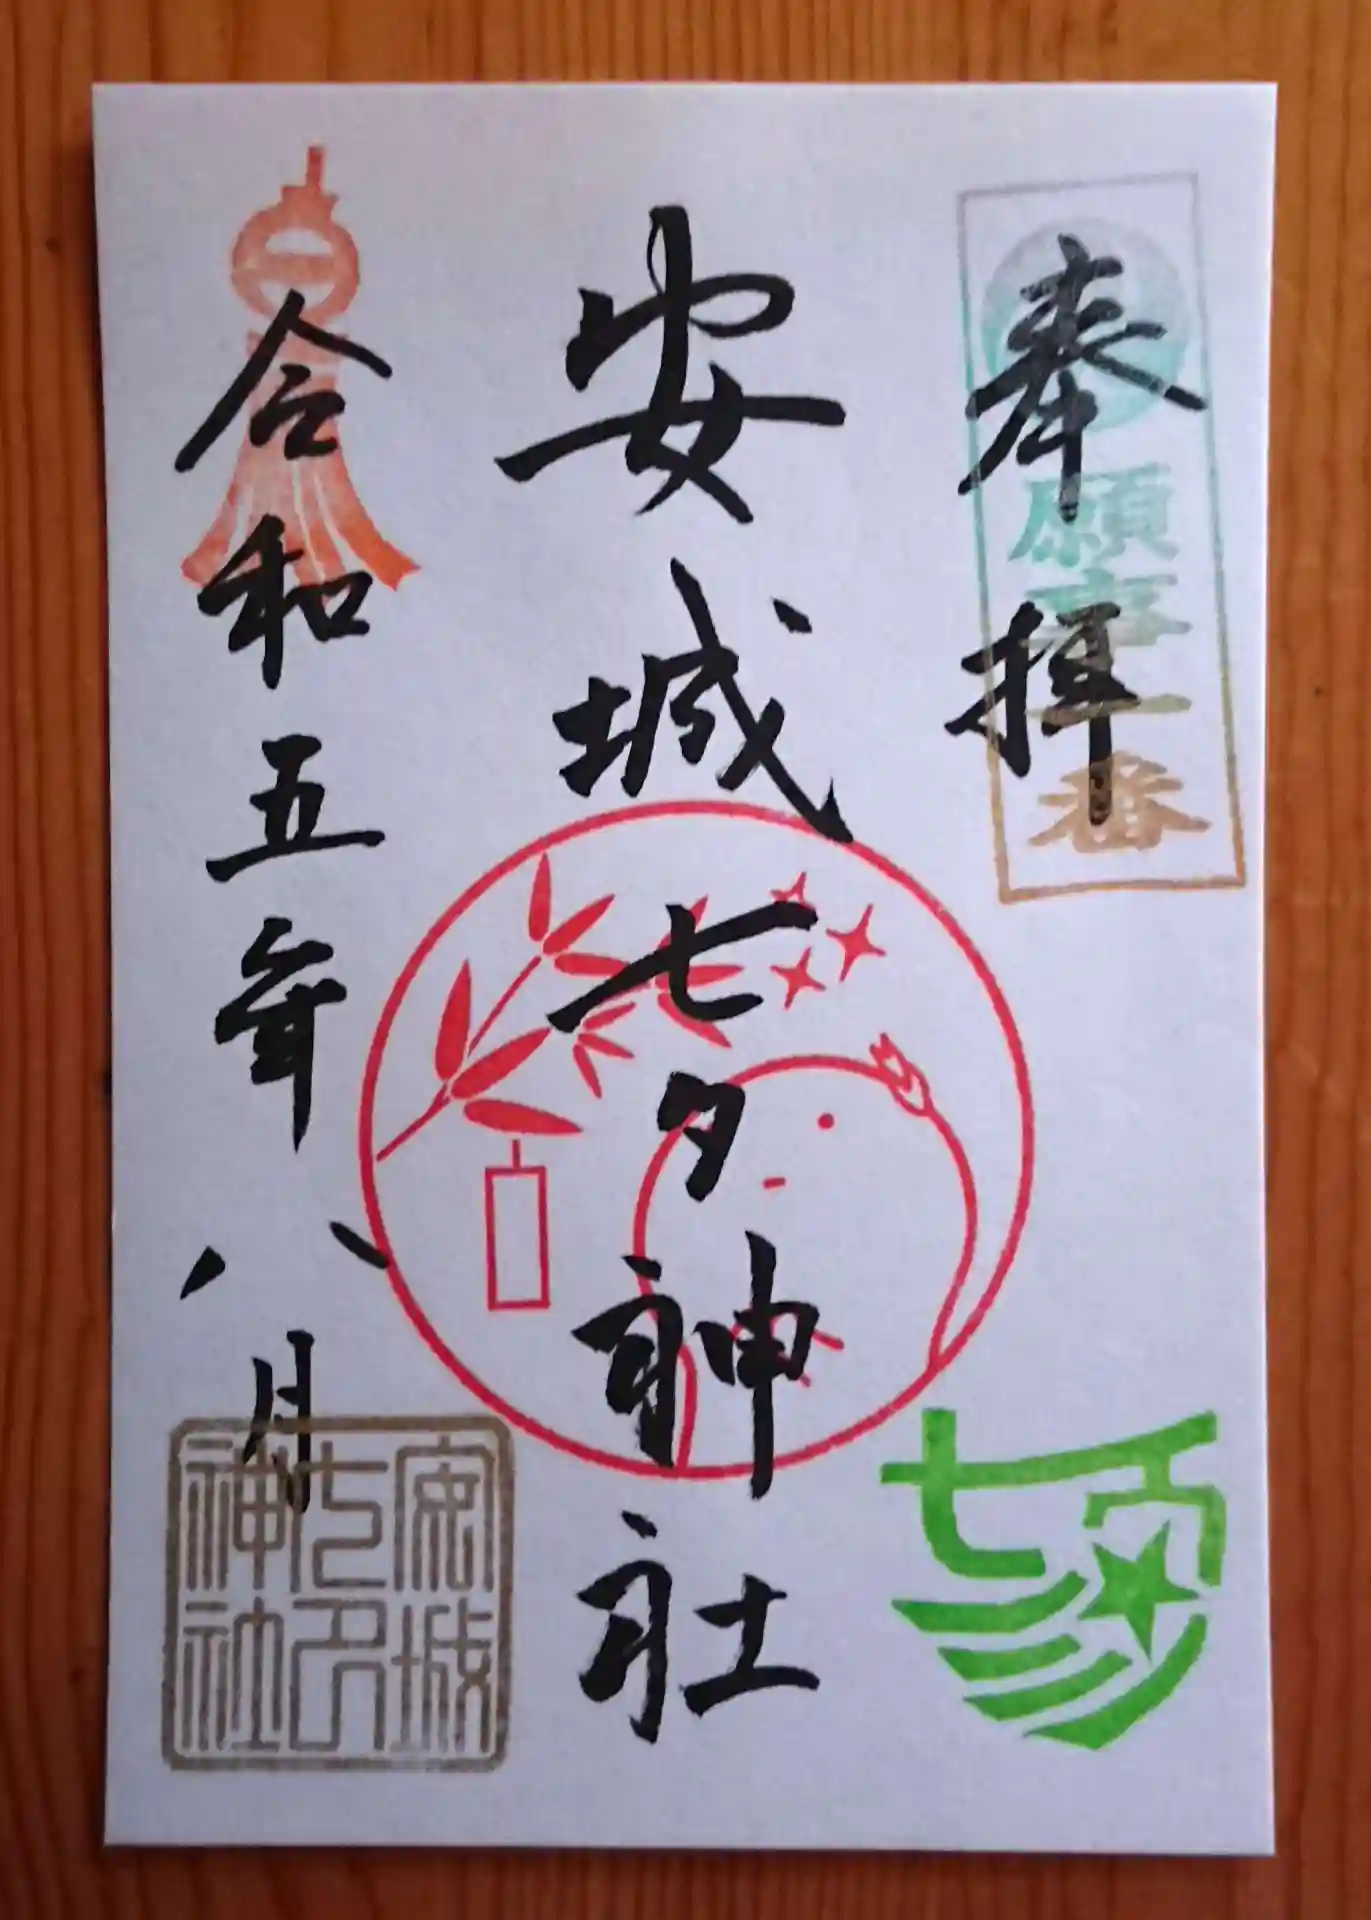 奉拝
願事一番
安城七夕神社
七夕
令和五年八月
安城
七夕
神社